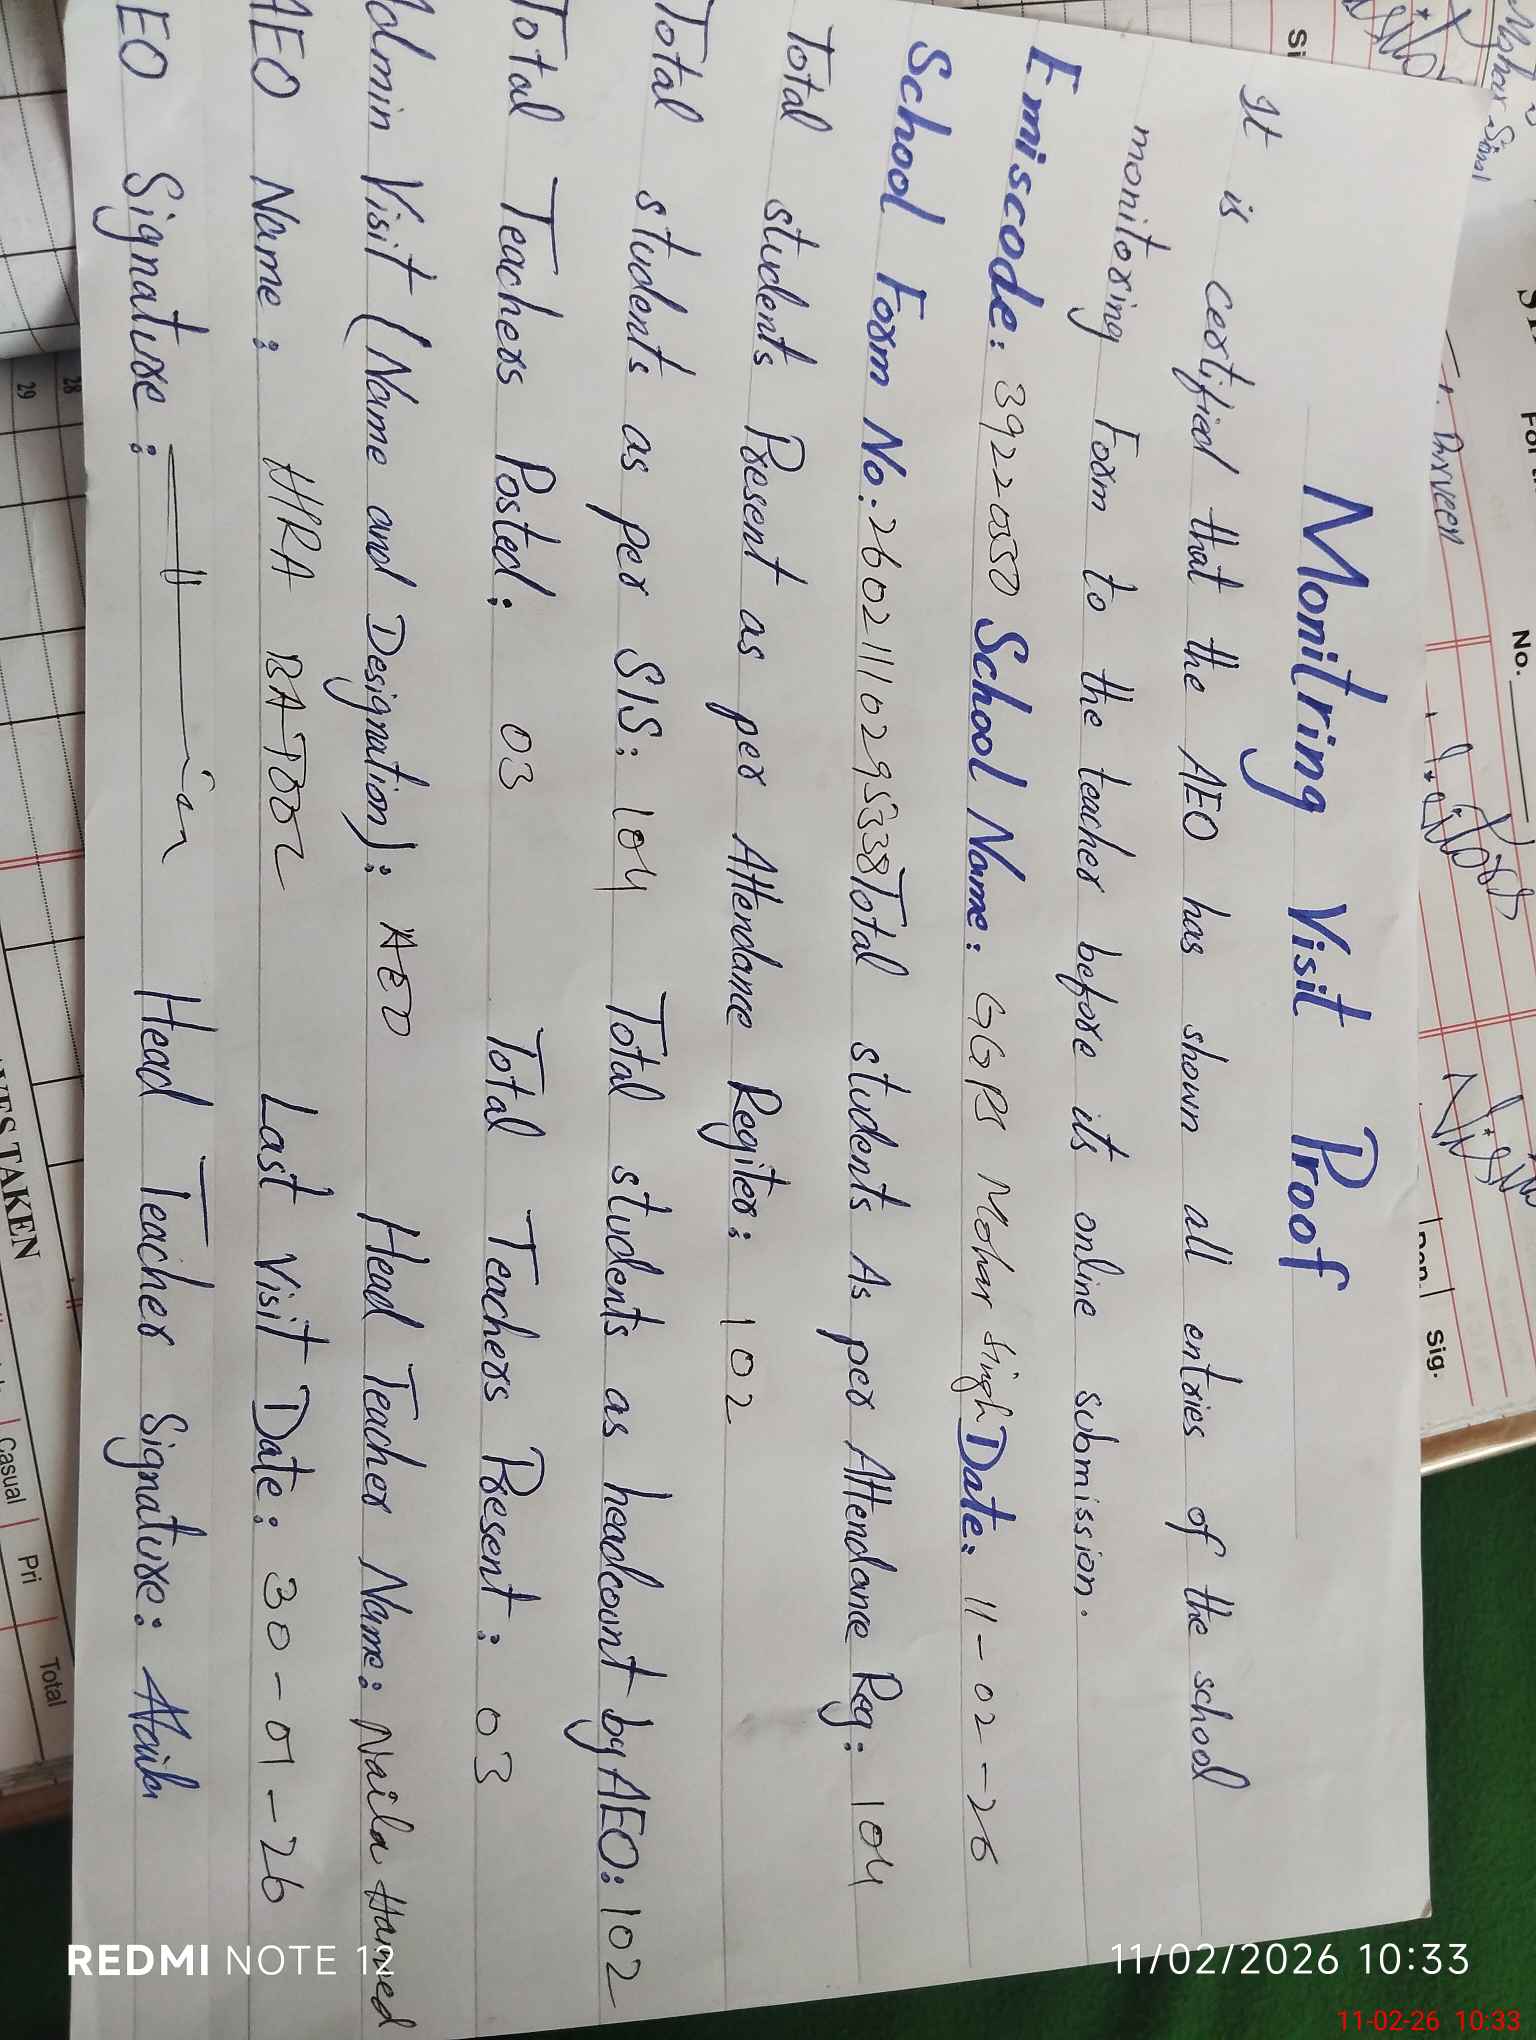 Monitring Visit Proof
It is certified that the AEO has shown all entries of the school
monitoring Form to the teacher before its online submission.
Emiscode: 39220550 School Name: GGPS Mohar Singh Date: 11-02-26
School Form No: 26021110295338 Total students As per Attendance Reg: 104
Total students Present as per Attendance Regiter: 102
Total students as per SIS: 104 Total students as headcount by AEO: 102
Total Teachers Posted: 03 Total Teachers Present: 03
Admin Visit (Name and Designation): AEO Head Teacher Name: Naila Hamed
AEO Name: HIRA BATOOL Last Visit Date: 30-01-26
EO Signature: Head Teacher Signature: Naila
No.
Sig.
Parveen
28
29
TAKEN
Casual
Pri
Total
REDMI NOTE 12
11/02/2026 10:33
11-02-26 10:33